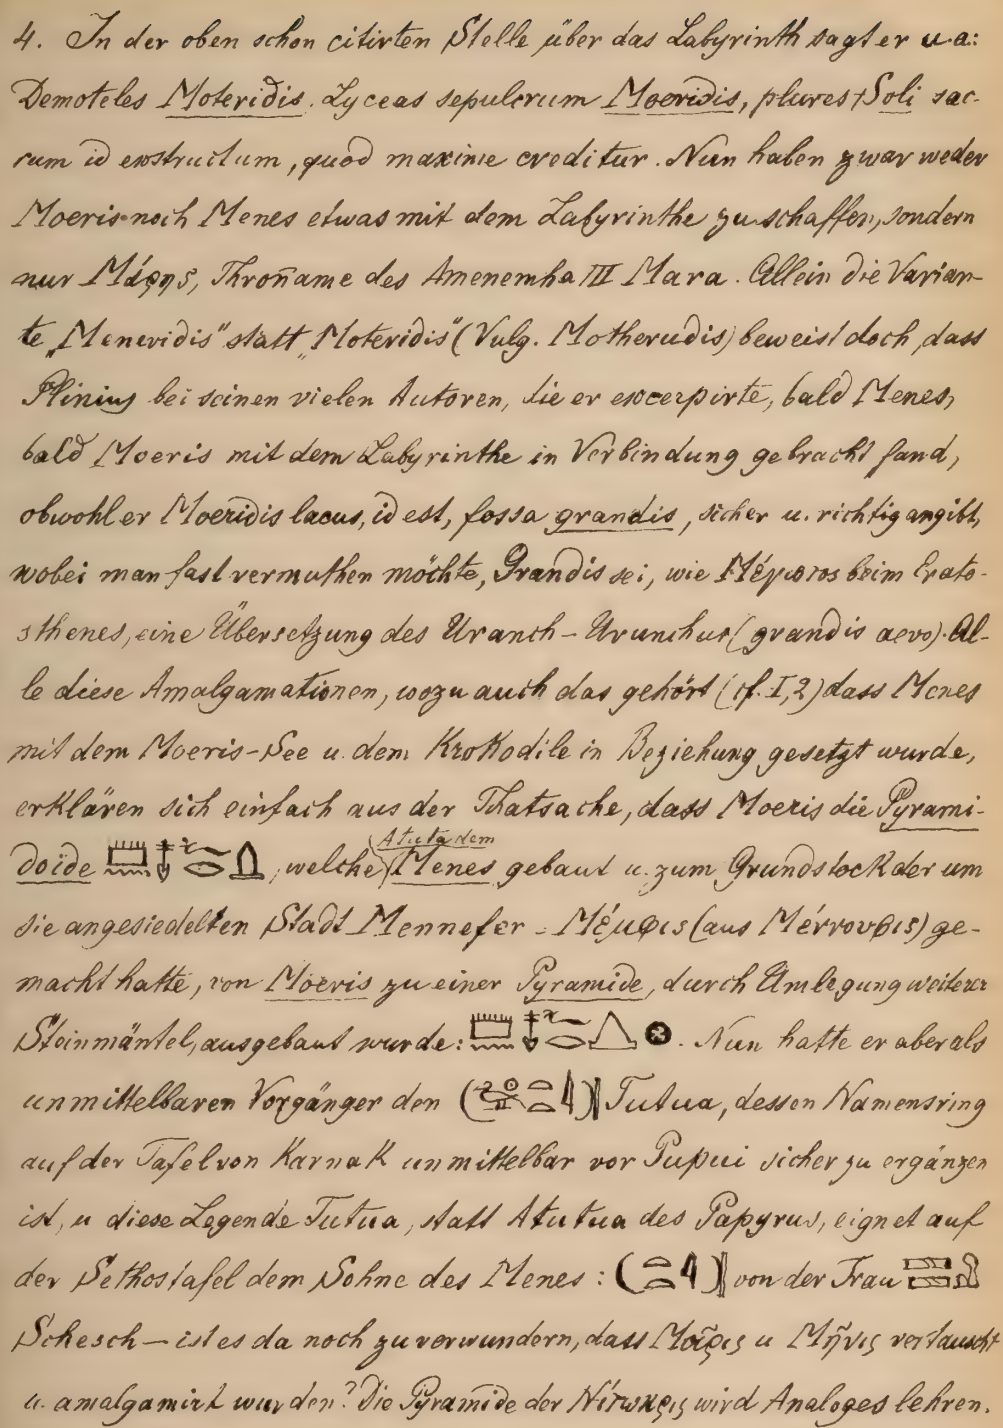 4. In der oben schon citirten Stelle über das Labyrinth sagt er u.a:
Demoteles Moteridis. Lyceas sepulcrum Moeridis, plures Soli sac-
rum id exstructum, quod maxime creditur. Nun haben zwar weder
Moeris noch Menes etwas mit dem Labyrinthe zu schaffen, sondern
nur Μάρης, Throname des Amenemha III Mara. Allein die Varian-
te „Menevidis" statt „Moteridis" (Vulg. Motherudis) beweist doch, dass
Plinius bei seinen vielen Autoren, die er excerpirte, bald Menes,
bald Moeris mit dem Labyrinthe in Verbindung gebracht fand,
obwohl er Moeridis lacus, id est, fossa grandis, sicher u. richtig angibt,
wobei man fast vermuthen möchte, Grandis sei, wie beim Erato-
sthenes, eine Übersetzung des Uranch-Urunchus (grandis aevo). Al-
le diese Amalgamationen, wozu auch das gehört (cf. I,2) dass Menes
mit dem Moeris-See u. dem Krokodile in Beziehung gesetzt wurde,
erklären sich einfach aus der Thatsache, dass Moeris die Pyrami-
doide , welche Atuta dem Menes gebaut u. zum Grundstock der um
sie angesiedelten Stadt Mennefer - Μέμφις (aus Μέννουφις) ge-
macht hatte, von Moeris zu einer Pyramide, durch Umlegung weiterer
Steinmäntel, ausgebaut wurde: . Nun hatte er aber als
unmittelbaren Vorgänger den Tutua, dessen Namensring
auf der Tafel von Karnak unmittelbar vor Pupui sicher zu ergänzen
ist, u diese Legende Tutua, statt Atutua des Papyrus, eignet auf
der Sethostafel dem Sohne des Menes: von der Frau
Schesch — ist es da noch zu verwundern, dass Μοῖρις u Μῆνις vertauscht
u. amalgamirt wurden? Die Pyramide der Νίτωκρις wird Analoges lehren.